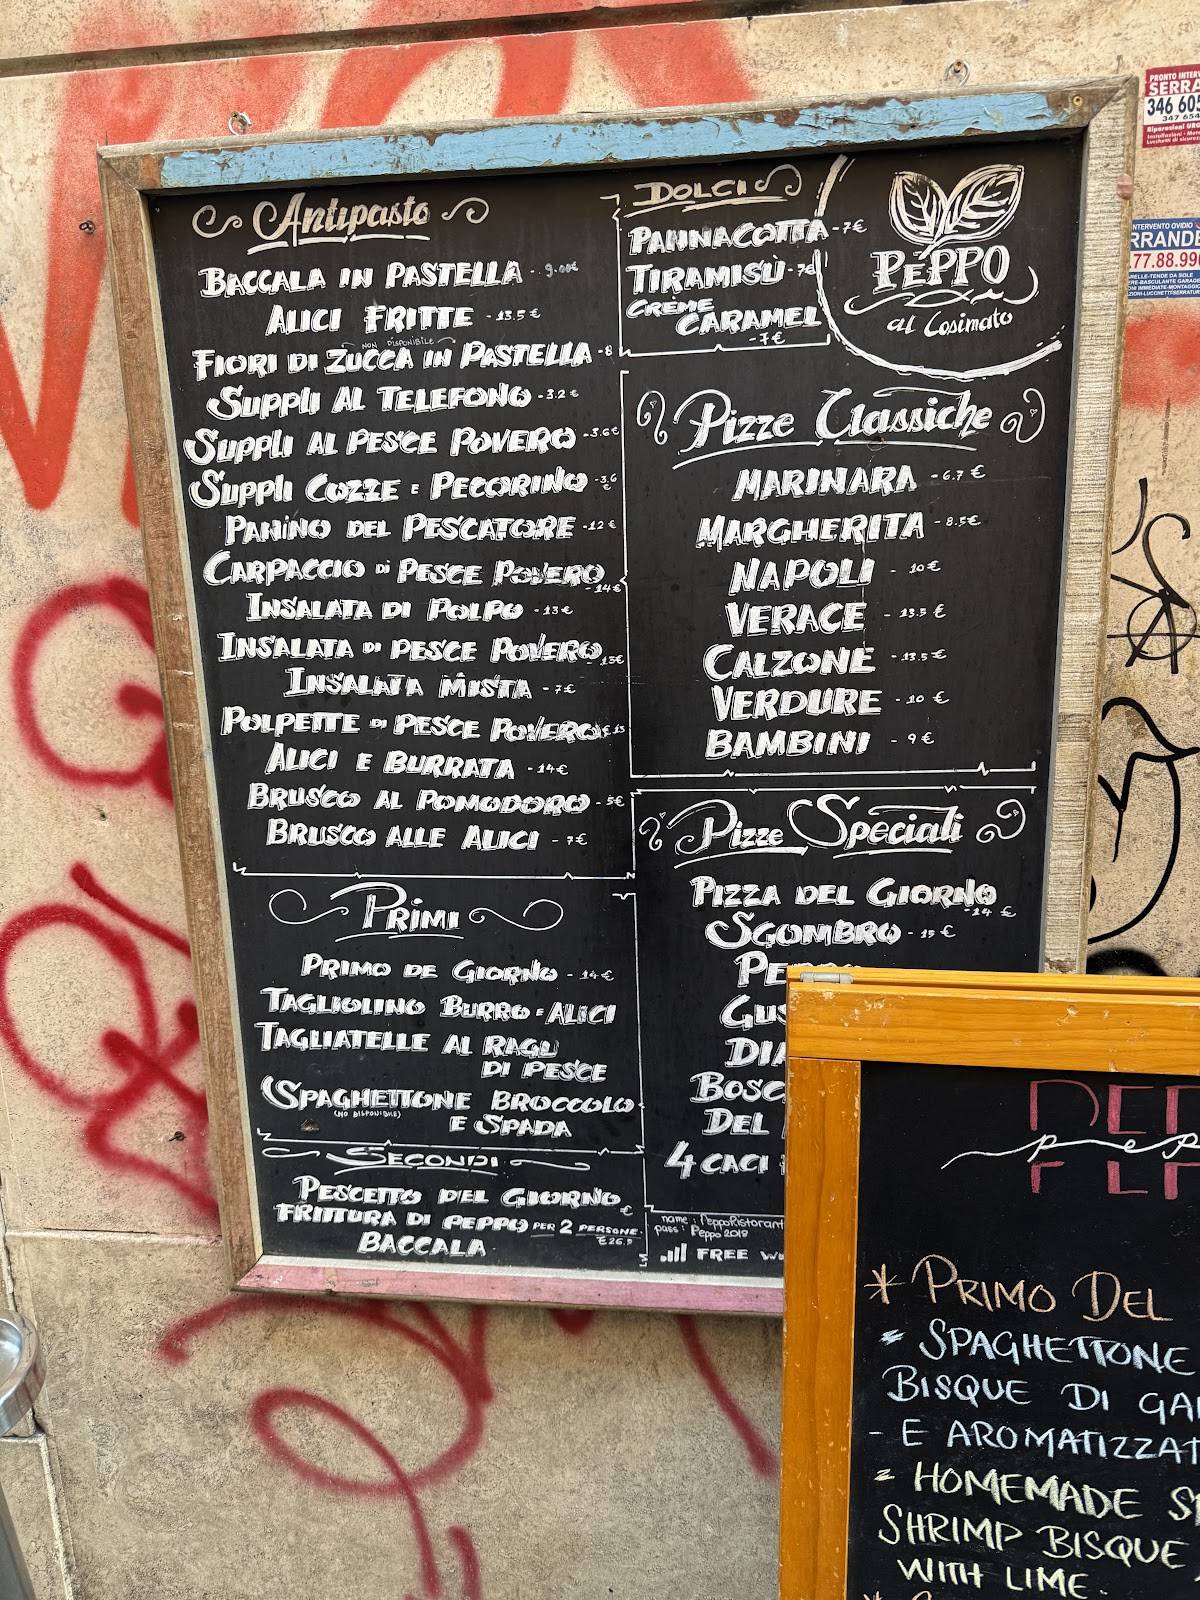 Antipasto
BACCALA IN PASTELLA - 9.00€
ALICI FRITTE - 13.5 €
NON DISPONIBILE
FIORI DI ZUCCA IN PASTELLA - 8
SUPPLI AL TELEFONO - 3.2 €
SUPPLI AL PESCE POVERO - 3.6€
SUPPLI COZZE E PECORINO - 3.6 €
PANINO DEL PESCATORE - 12 €
CARPACCIO DI PESCE POVERO
- 14€
INSALATA DI POLPO - 13 €
INSALATA DI PESCE POVERO 13€
INSALATA MISTA - 7 €
POLPETTE DI PESCE POVERO € 13
ALICI E BURRATA - 14€
BRUSCO AL POMODORO - 5€
BRUSCO ALLE ALICI - 7€
PRIMI
PRIMO DE GIORNO - 14€
TAGLIOLINO BURRO E ALICI
TAGLIATELLE AL RAGU
DI PESCE
SPAGHETTONE BROCCOLO
(NO DISPONIBILE)
E SPADA
SECONDI
PESCETTO DEL GIORNO €
FRITTURA DI PEPPO PER 2 PERSONE
€26.
BACCALA
DOLCI
PANNACOTTA - 7€
TIRAMISÙ - 7€
CRÈME
CARAMEL
- 7€
PEPPO
al Cosimato
Pizze Classiche
MARINARA - 6.7 €
MARGHERITA - 8.5€
NAPOLI - 10€
VERACE - 13.5 €
CALZONE - 13.5€
VERDURE - 10 €
BAMBINI - 9 €
Pizze Speciali
PIZZA DEL GIORNO
- 14 €
SGOMBRO - 15 €
PEPPO
GUS
DIA
BOSC
DEL
4 CACI
name: PeppoRistorant
pass: Peppo2018
FREE
LM
PRONTO INTERV
SERRA
346 605
347 654
Riparazioni URG
NTERVENTO OVIDIO
RRANDE
77.88.996
PEP
pep
* PRIMO DEL
SPAGHETTONE
BISQUE DI GA
- E AROMATIZZAT
HOMEMADE S
SHRIMP BISQUE
WITH LIME.